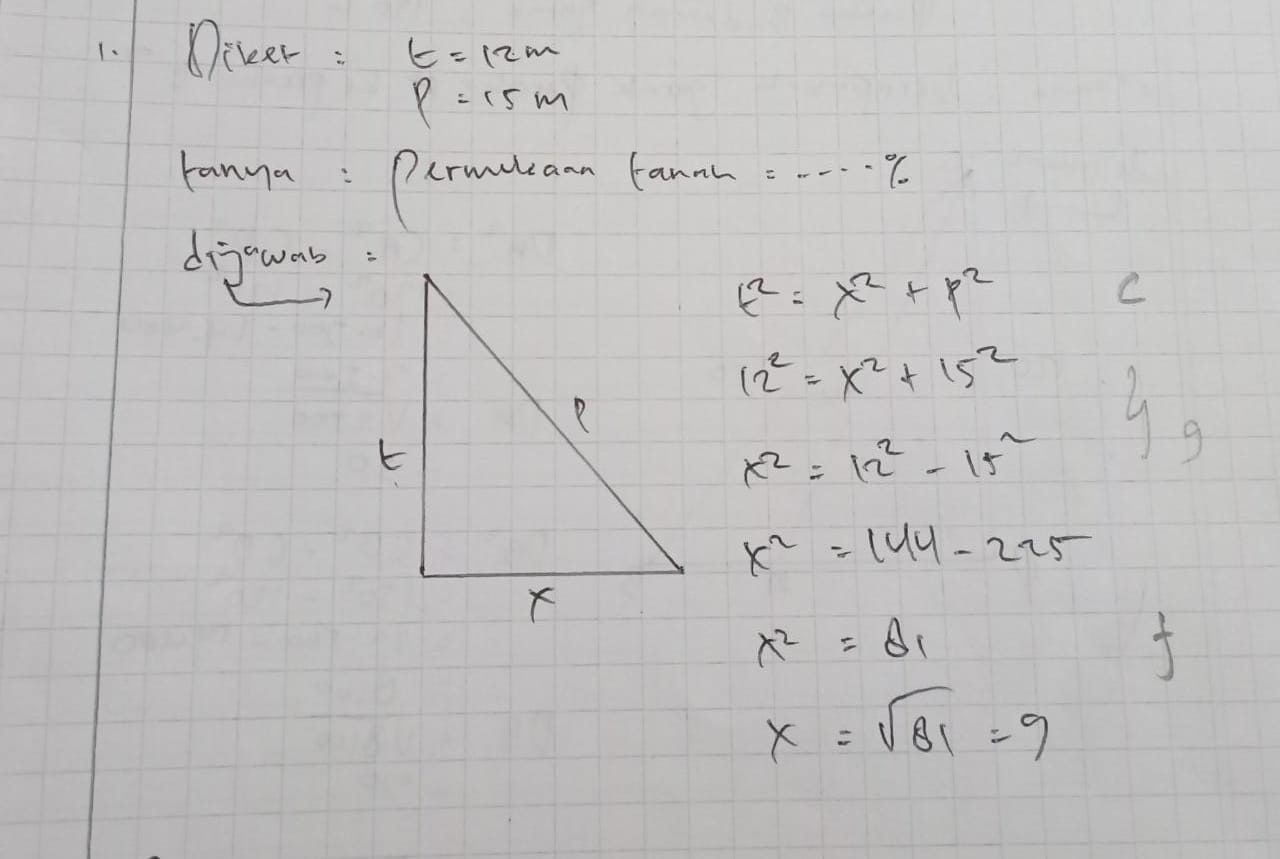 1. Diket : t = 12 m
P = 15 m
tanya : Permukaan tanah = ....%
dijawab :
t
P
x
t² = x² + p² c
12² = x² + 15²
x² = 12² - 15² g
x² = 144 - 225
x² = 81 f
x = √81 = 9